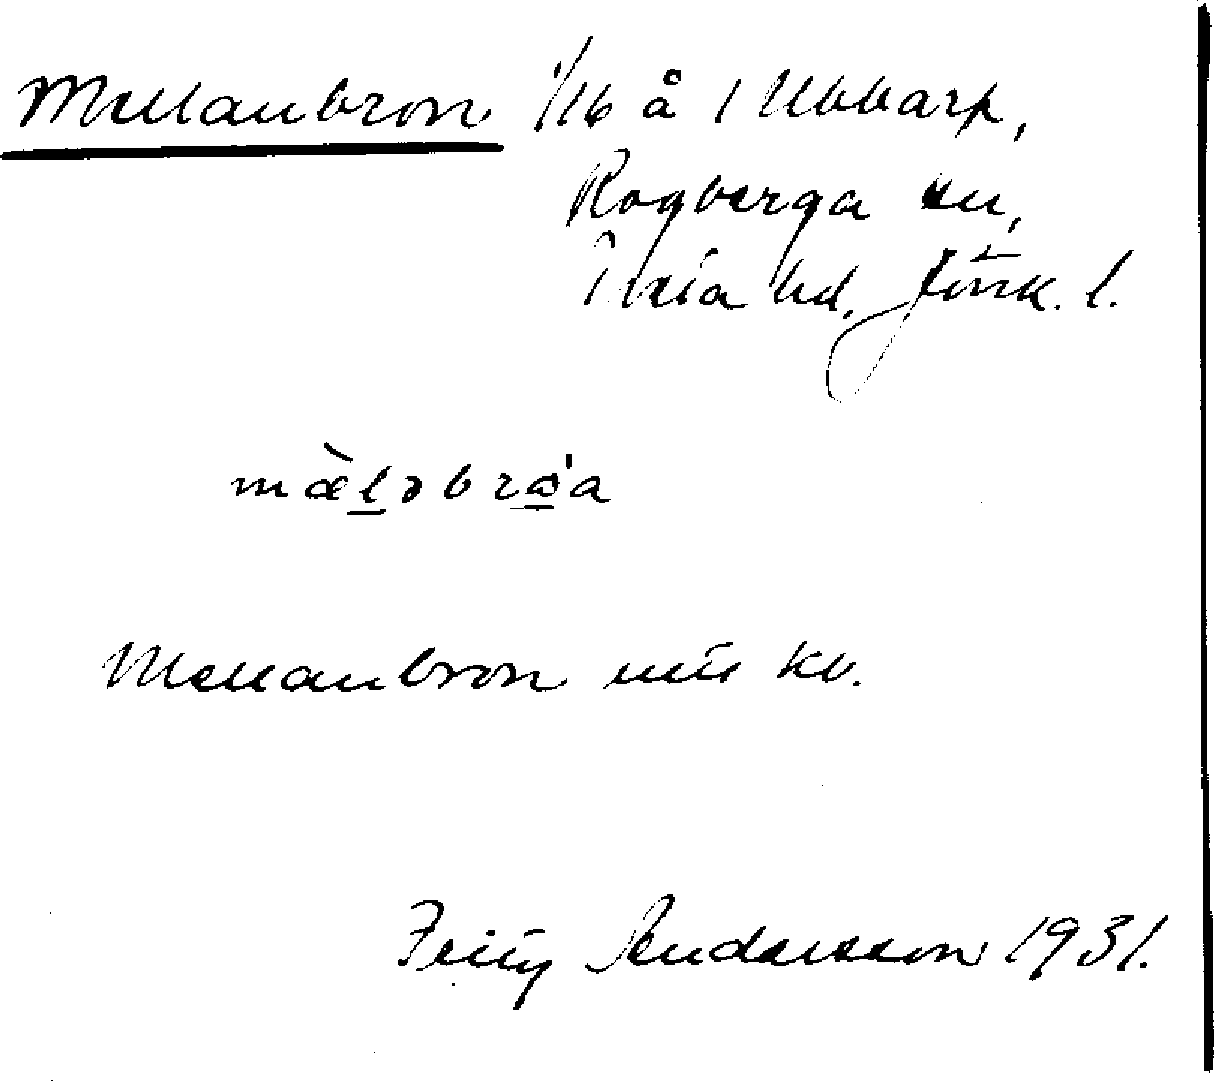 Mellanbron 1/16 å 1 Ubbarp,
Rogberga sn,
Tveta hd, Jönk. l.
mæ̀l̲əbrω̲'a
Mellanbron kv.
Andersson 1931.